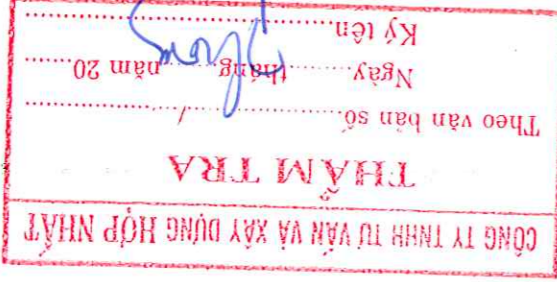 CÔNG TY TNHH TƯ VẤN VÀ XÂY DỰNG HỢP NHẤT
THẨM TRA
Theo văn bản số................/................
Ngày............tháng............năm 20......
Ký tên................